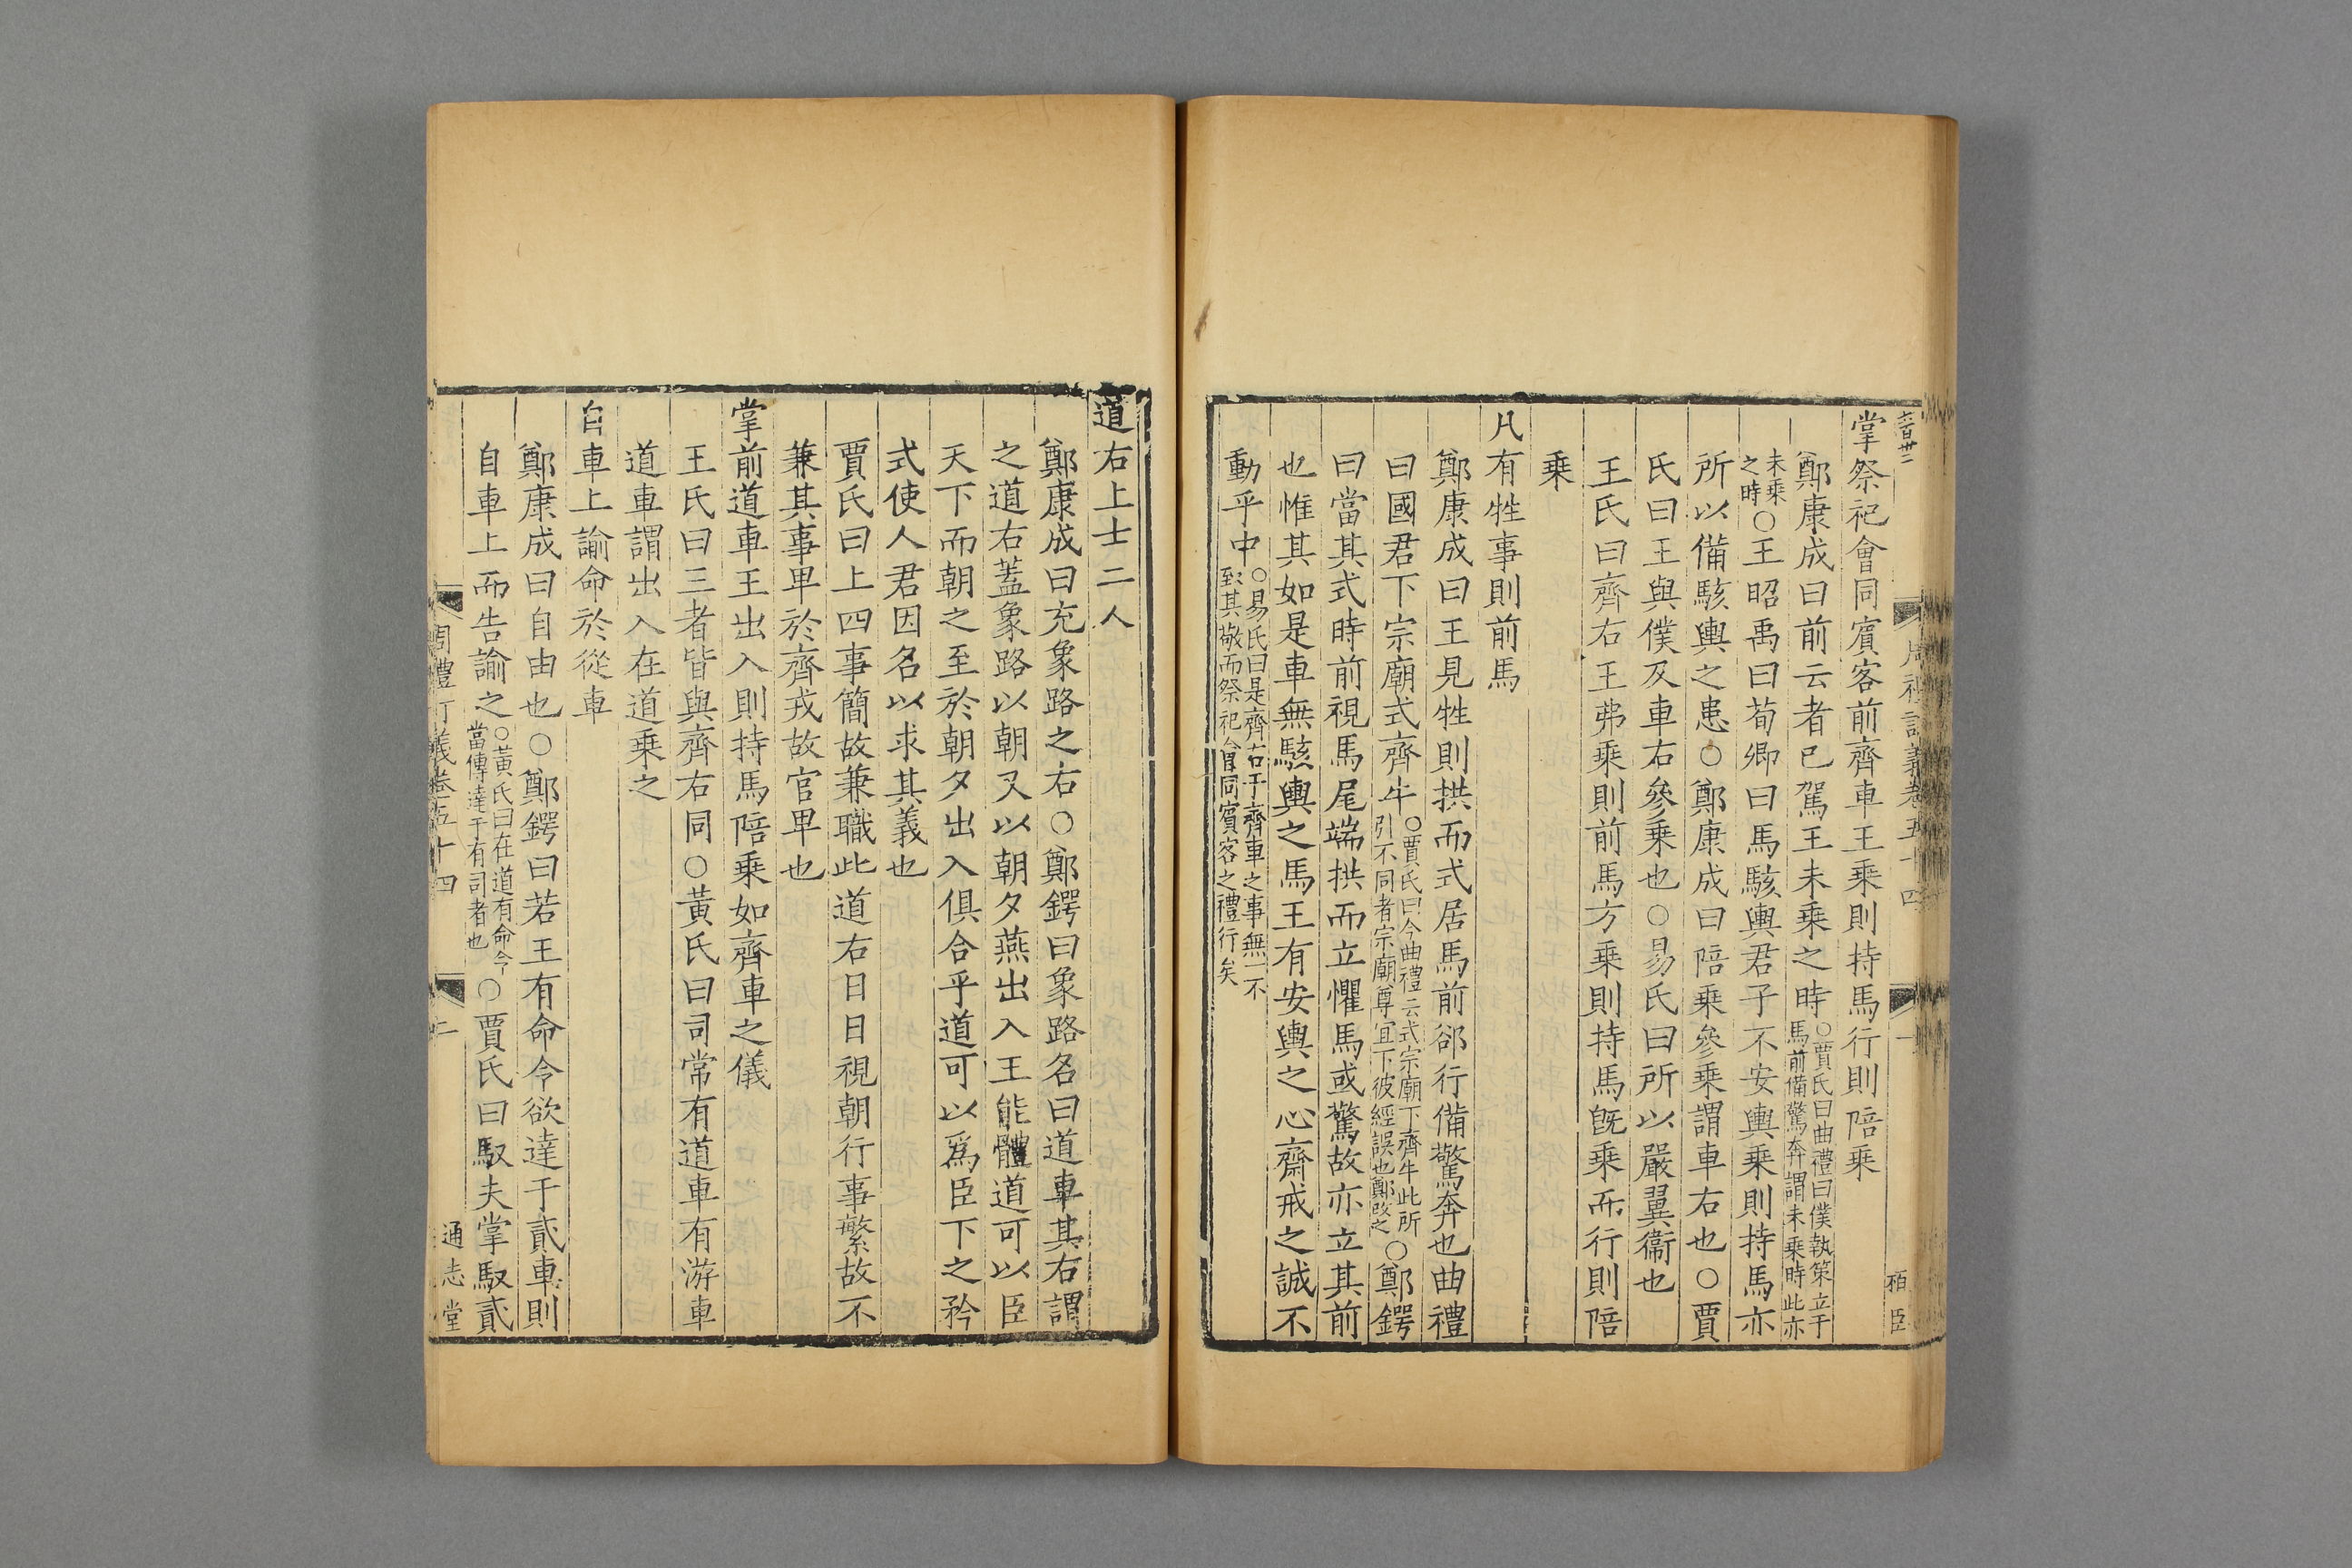 掌祭祀會同賓客前齊車王乘則持馬行則陪乘
鄭康成曰前云者已駕王未乘之時○賈氏曰曲禮曰僕執策立于馬前備驚奔謂未乘時此亦
未乘之時○王昭禹曰荀卿曰馬駭輿君子不安輿乘則持馬亦
所以備駭輿之患○鄭康成曰陪乘參乘謂車右也○賈
氏曰王與僕及車右參乘也○易氏曰所以嚴翼衞也
王氏曰齊右王弗乘則前馬方乘則持馬旣乘而行則陪
乘
凡有牲事則前馬
鄭康成曰王見牲則拱而式居馬前郤行備驚奔也曲禮
曰國君下宗廟式齊牛○賈氏曰今曲禮云式宗廟下齊牛此所引不同者宗廟尊宜下彼經誤也鄭改之○鄭鍔
曰當其式時前視馬尾端拱而立懼馬或驚故亦立其前
也惟其如是車無駭輿之馬王有安輿之心齋戒之誠不
動乎中○易氏曰是齊右于齊車之事無一不致其敬而祭祀會同賓客之禮行矣
周禮訂義卷五十四
一
道右上士二人
鄭康成曰充象路之右○鄭鍔曰象路名曰道車其右謂
之道右蓋象路以朝又以朝夕燕出入王能體道可以臣
天下而朝之至於朝夕出入俱合乎道可以爲臣下之矜
式使人君因名以求其義也
賈氏曰上四事簡故兼職此道右日日視朝行事繁故不
兼其事卑於齊戎故官卑也
掌前道車王出入則持馬陪乘如齊車之儀
王氏曰三者皆與齊右同○黃氏曰司常有道車有游車
道車謂出入在道乘之
自車上諭命於從車
鄭康成曰自由也○鄭鍔曰若王有命令欲達于貳車則
自車上而告諭之○黃氏曰在道有命令當傳達于有司者也○賈氏曰馭夫掌馭貳
周禮訂義卷五十四
二
通志堂